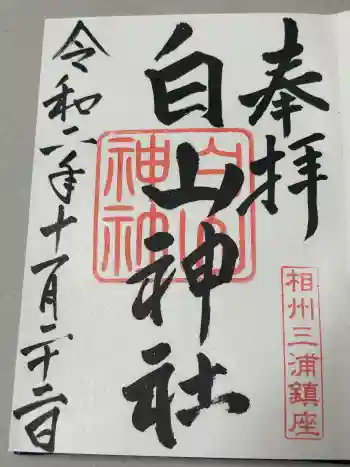 奉拝
白山神社
白山神社
相州三浦鎮座
令和六年十一月二十二日